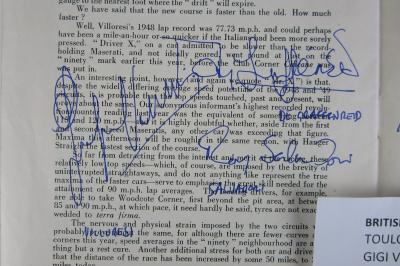 gauge to the nearest foot where the "drift" will expire.
We have said the new course is faster than the old. How much
faster ?
Well, Villoresi's 1948 lap record was 77.73 m.p.h. and could perhaps
have been a mile-an-hour or so quicker if the Italian had been more sorely
pressed. "Driver X," on a car admitted to be slower than the record
holding Maserati, and not ideally geared, went round at
"ninety" mark earlier this year, before the Club Corner
was put in.
An interesting point, however, and again we quote "Mr. X," is that,
despite the widely different average speed potentials of the 1948 and '49
is probable that the top speeds touched, past and present, will
the same. Our anonymous informant's highest rev-counter
reading this year was the equivalent of some
it is highly doubtful whether, aside from the first
second-placed Maseratis, any other car was exceeding that figure.
Maxima will be roughly the same road, with Hangar
Straight the fastest sector of the course.
So far from detracting from the interest and these
relatively low top speeds—which, of course, are imposed by the brevity of
uninterrupted straightaways, and do not anything like represent the true
maxima of the faster cars—serve to emphasise the great skill needed for the
attainment of 90 m.p.h. lap averages. The leading drivers, for example,
are able to take Woodcote Corner, first beyond the pit area, at between
85 and 90 m.p.h., at which pace, it need hardly be said, tyres are not exactly
wedded to terra firma.
The nervous and physical strain imposed by the two circuits
probably the same, for although there are fewer curves
corners this year, speed averages in the "ninety" neighbourhood are
thing but a rest cure. Another additional stress for both car and driver
that the distance of the race has been increased by some 50 miles, to
miles today.
DE GRAFFENRIED
SALVADORI
VILLORESI
BRITISH
TOULO
GIGI V